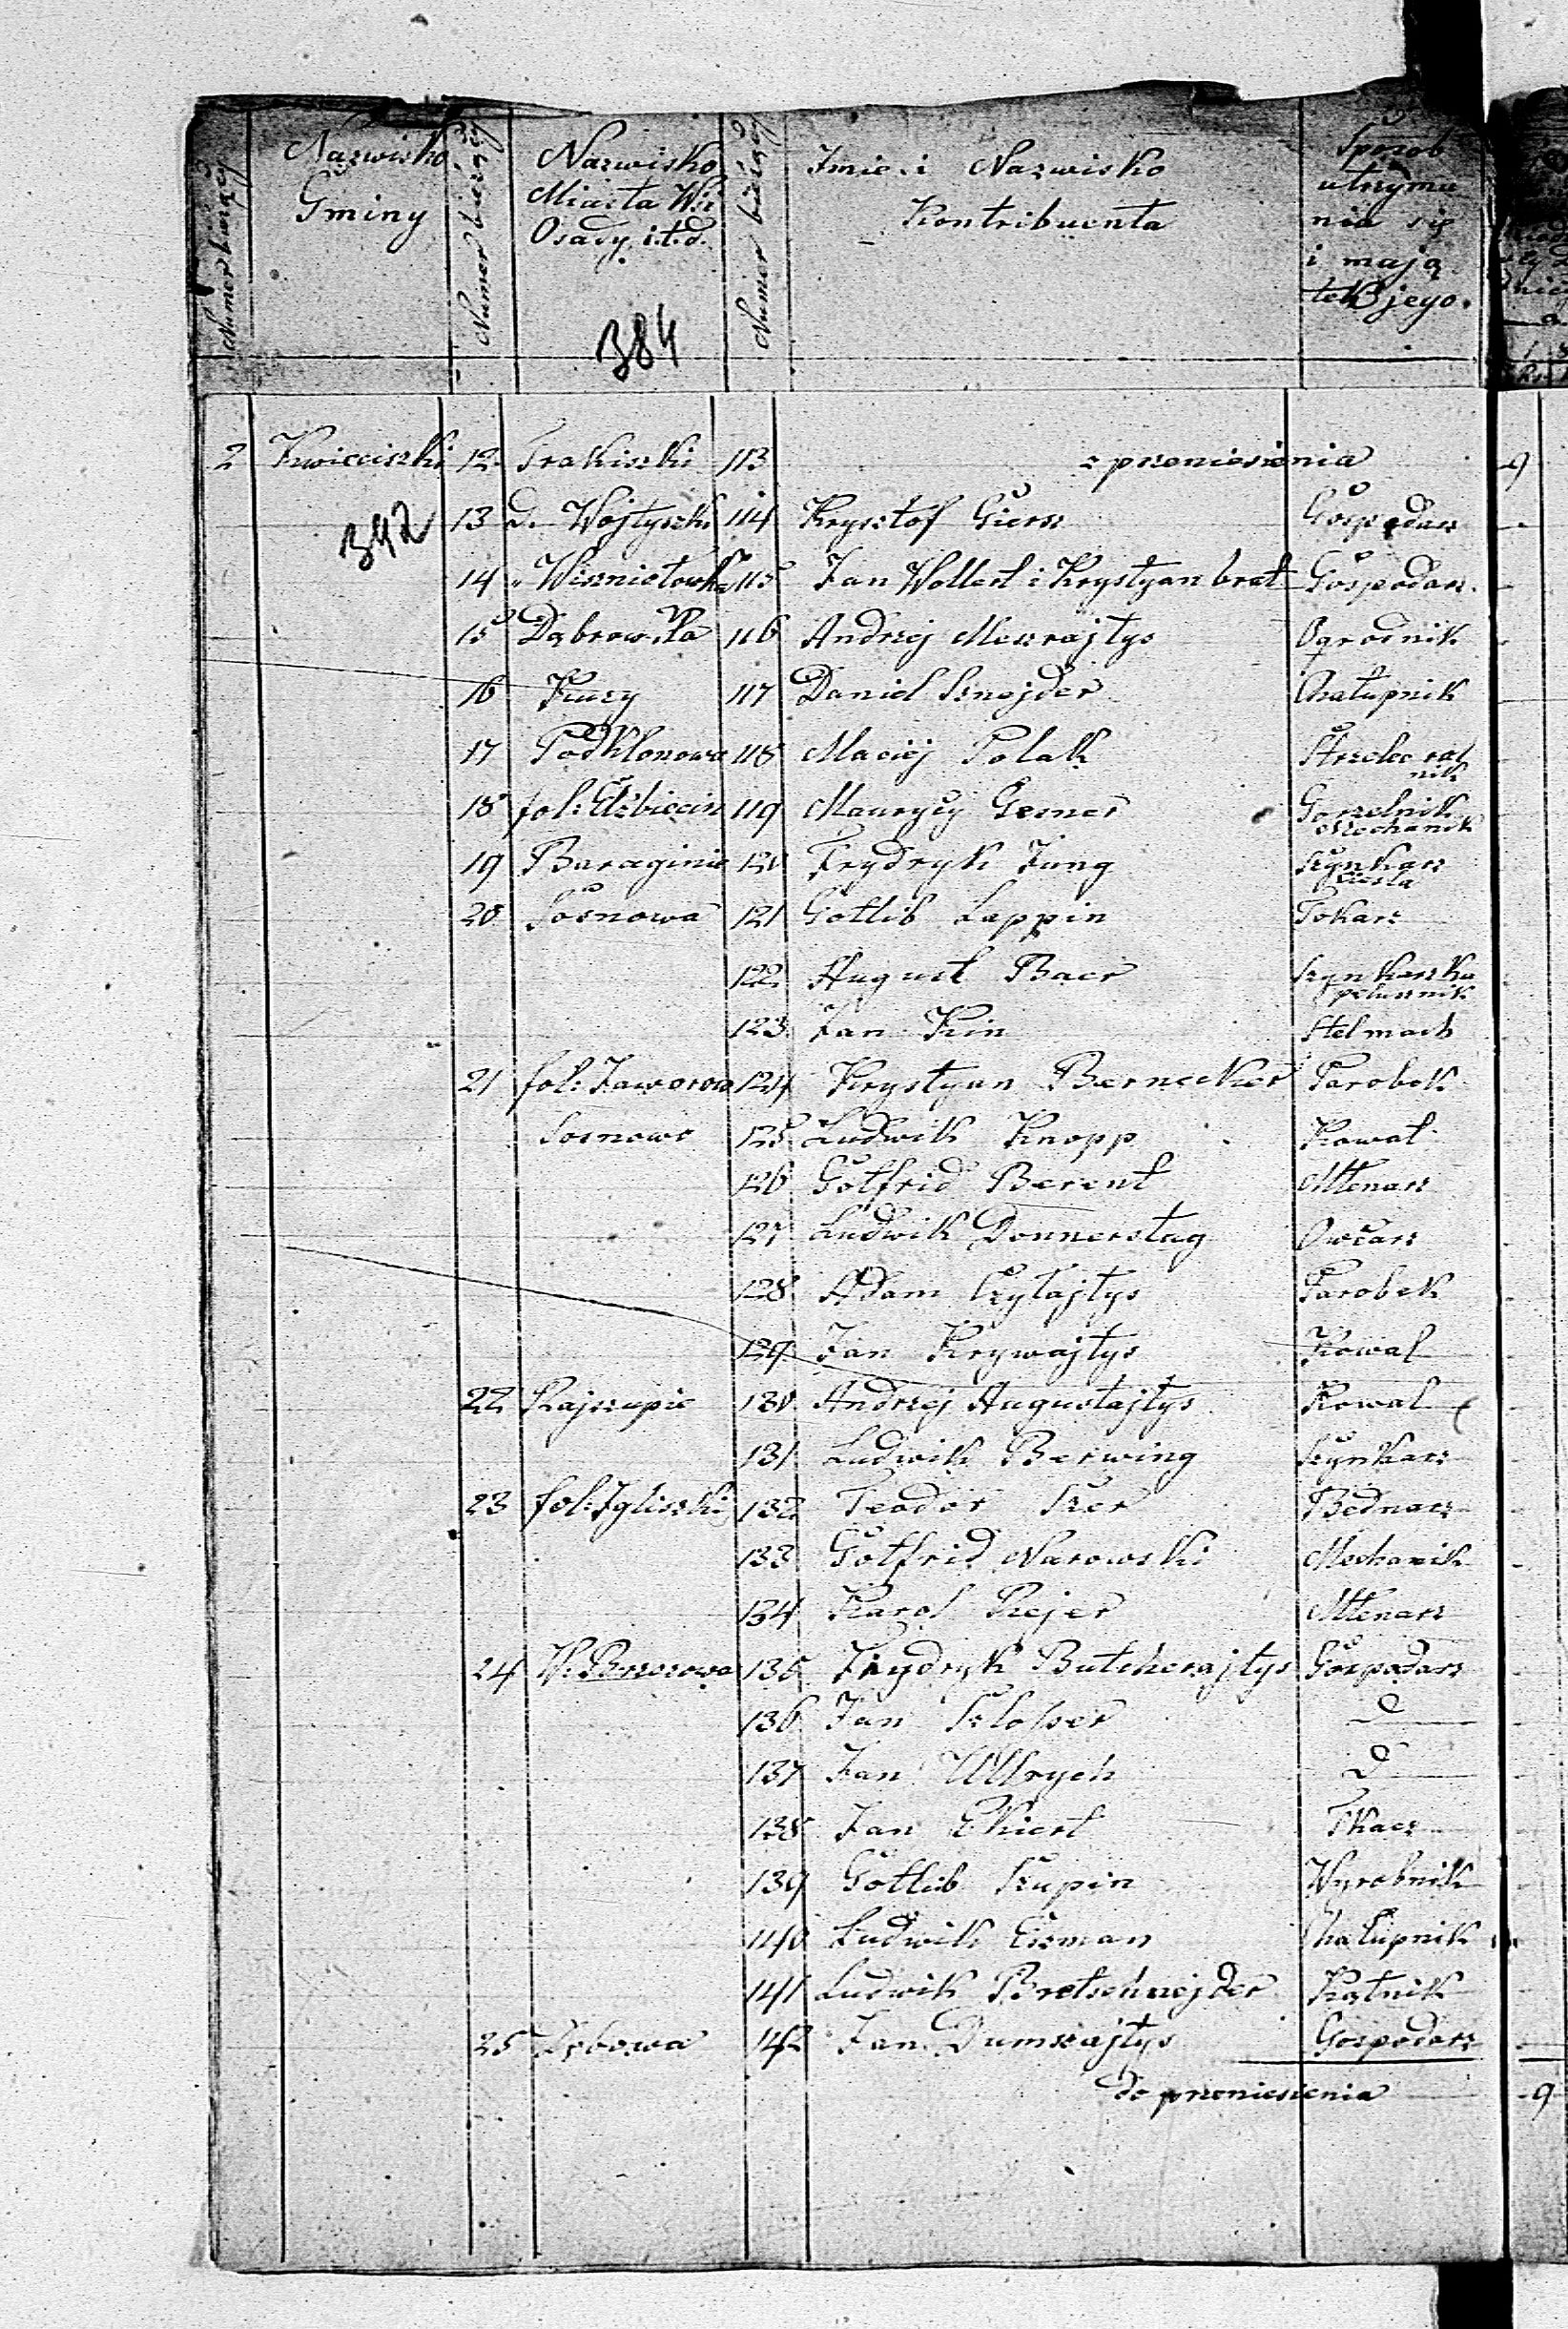 Numer bieżący
Nazwisko Gminy
Numer bieżący
Nazwisko Miasta Wsi Osady. i.t.d.
Numer bieżący
Imie. i Nazwisko Kontribuenta
Sposob utrzyma nia się i mają tek jego.
384
2 Kwieciszki 12 Trakiszki 113 z przeniesienia 9
342
13 d. Wojtyszki 114 Krysztof Giersz Gospodarz
14 " Wiszniotowka 115 Jan Wollert i Krystyan brat Gospodarz.
15 Dąbrowka 116 Andrzej Meszrajtys Ogrodnik
16 Kuzy 117 Daniel Sznejder Chałupnik
17 Podklonowa 118 Maciej Polak Strzelec rol nik
18 fol: Elżbiecin 119 Maurycy Gesner Gorzelnik Mechanik
19 Baraginie 120 Frydryk Jung Szynkarz Ciesla
20 Sosnowa 121 Gotlib Lappin Tokarz
122 August Baer Szynkarz ka pelusznik
123 Jan Kin Stelmach
21 fol: Jaworowo 124 Krystyan Bernecker Parobek
Sosnowo 125 Ludwik Knopp Kowal
126 Gotfrid Berent Młenarz
127 Ludwik Donnerstag Owczarz
128 Adam Czytajtys Parobek
129 Jan Krywajtys Kowal
22 Rajszupie 130 Andrzej Augustajtys Kowal
131 Ludwik Berwing Szynkarz
23 fol: Igliszki 132 Teodor Szer Bednarz
133 Gotfrid Narowski Mechanik
134 Karol Rejer Młenarz
24 W. Brzozowa 135 Frydryk Butcherajtys Gospodarz
136 Jan Szlosser d
137 Jan Ullrych d
138 Jan Ekiert Tkacz
139 Gotlib Szupin Wyrobnik
140 Ludwik Eisman Chałupnik
141 Ludwik Bretschnejder Kątnik
25 Dębowa 142 Jan Dumszajtys Gospodarz
do przeniesienia 9